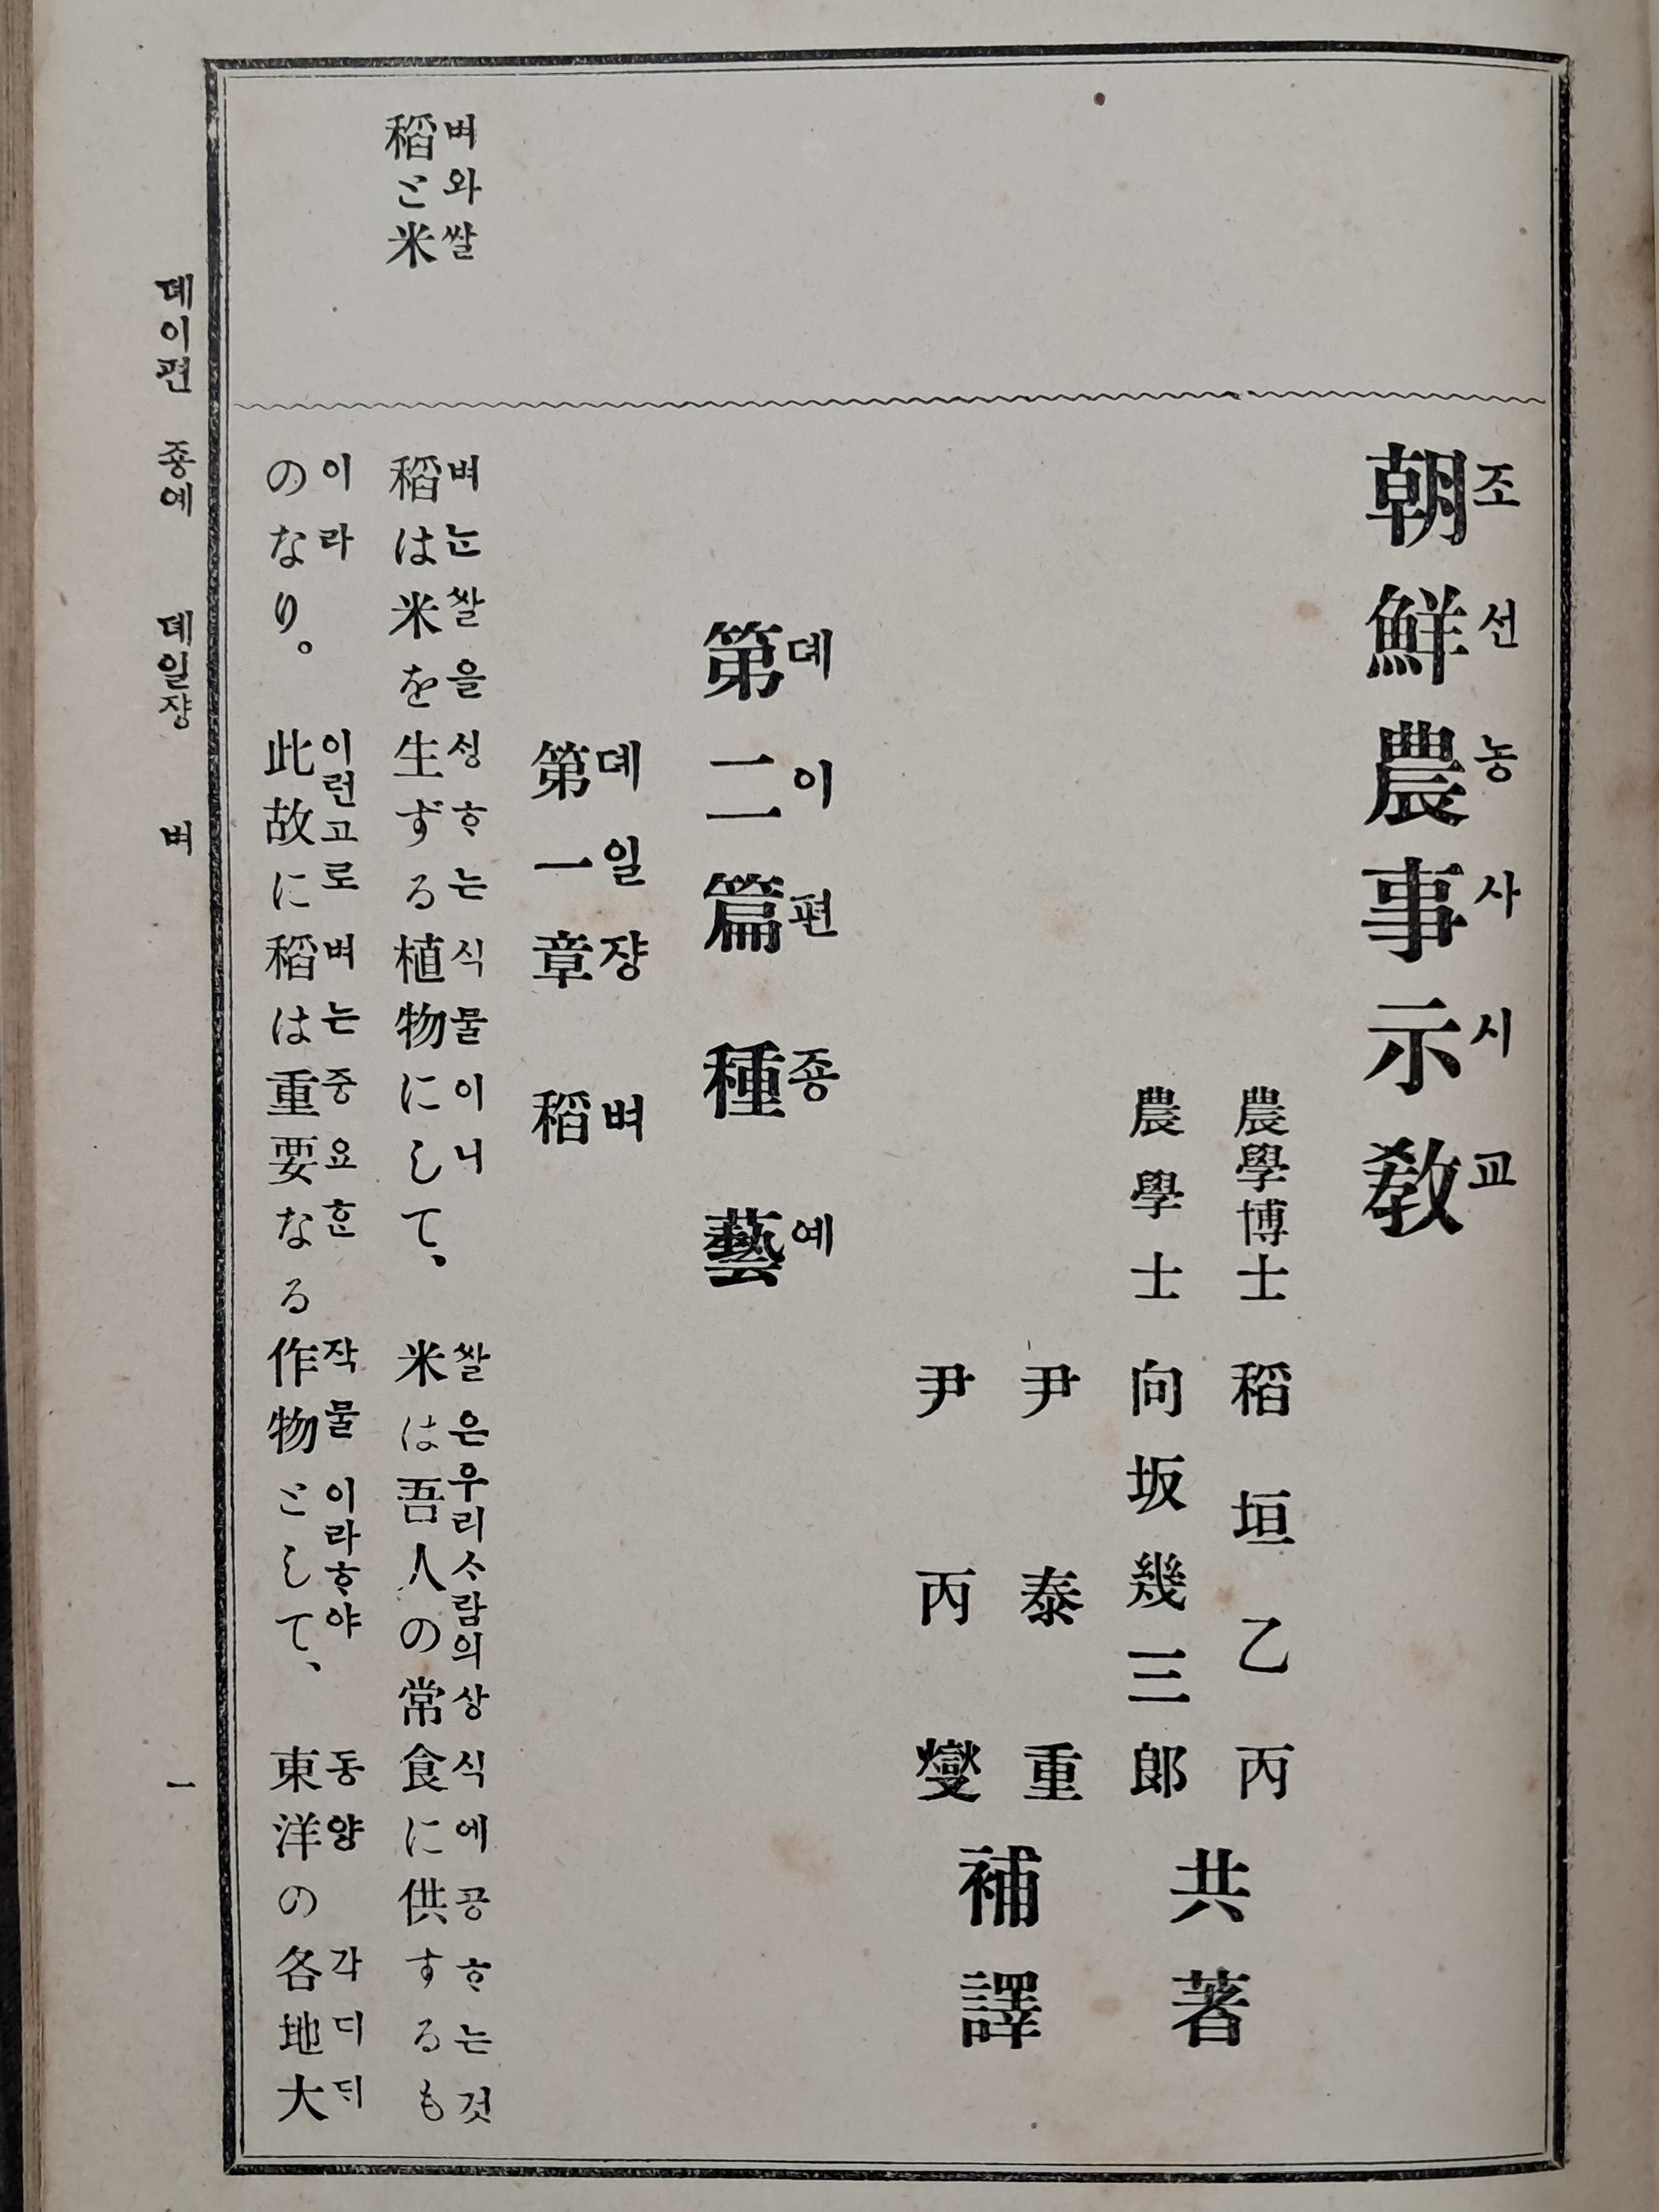 朝鮮農事示教
조선농사시교
農學博士 稻垣乙丙
農學士 向坂幾三郎
共著
尹泰重
尹丙燮
補譯
第二篇 種藝
뎨이편 죵예
第一章 稻
뎨일쟝 벼
벼와쌀
稻と米
벼는쌀을싱ᄒᆞ는식물이니 쌀은우리ᄉᆞ람의상식에공ᄒᆞ는것
稻は米を生ずる植物にして、米は吾人の常食に供するも
이라 이런고로벼는중요ᄒᆞᆫ작물이라ᄒᆞ야 동양 각디ᄃᆡ
のなり。此故に稻は重要なる作物として、東洋の各地大
뎨이편 죵예 뎨일쟝 벼 一